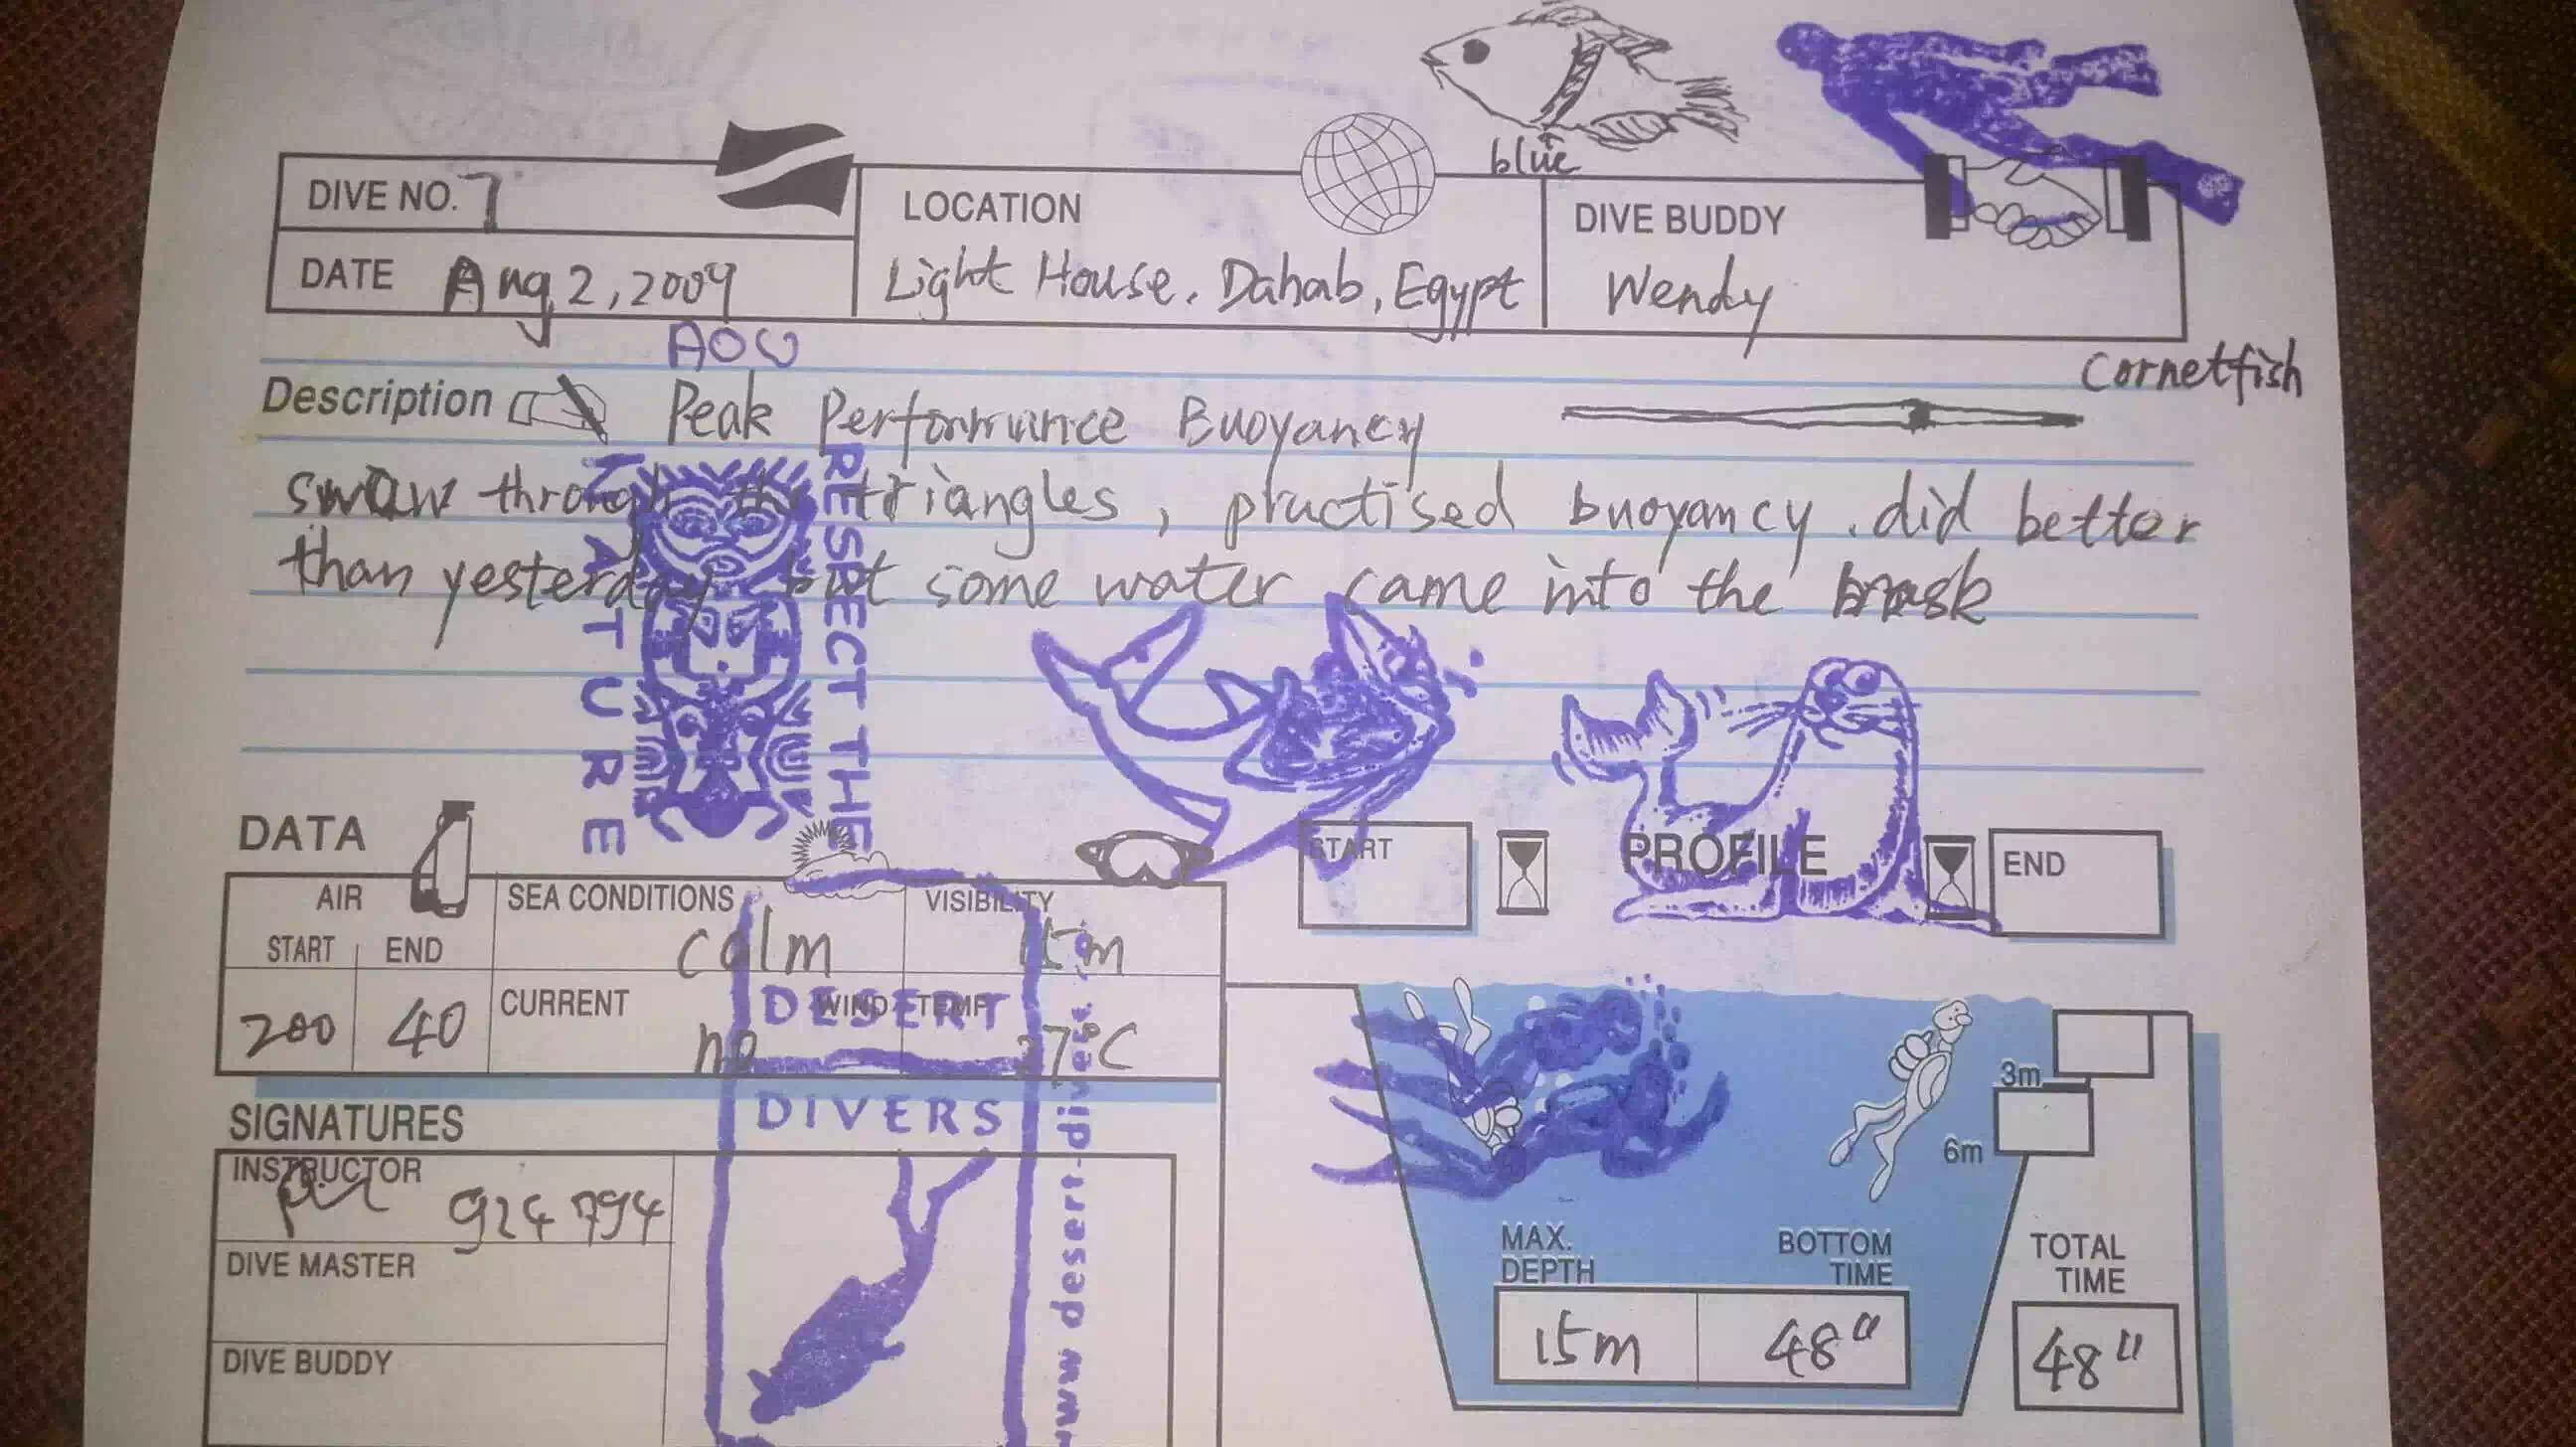 blue
DIVE NO. 7
LOCATION
DIVE BUDDY
DATE Aug 2, 2009
Light House. Dahab, Egypt
Wendy
AOW
Cornetfish
Description Peak Performance Buoyancy
swam through the triangles, practised buoyancy. did better
than yesterday but some water came into the mask
RESPECT THE
NATURE
DATA
START
PROFILE
END
AIR
SEA CONDITIONS
VISIBILITY
START
END
calm
15m
200
40
CURRENT
WIND
TEMP
no
27°C
DESERT
DIVERS
www.desert-divers.
3m
6m
SIGNATURES
INSTRUCTOR
924794
DIVE MASTER
DIVE BUDDY
MAX.
DEPTH
BOTTOM
TIME
TOTAL
TIME
15m
48"
48"